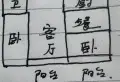 卫
厨
卧
客厅
卧
阳台
阳台